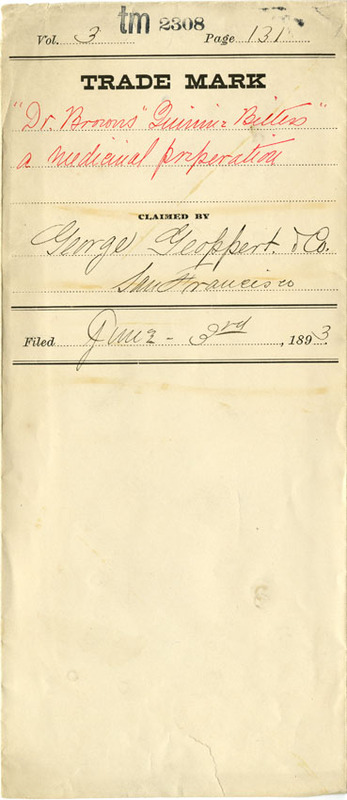 tm 2308
Vol. 3 Page 131
TRADE MARK
"Dr. Browns" Quinine Bitters"
a medicinal preperation
CLAIMED BY
George Geoppert. & Co.
San Francisco
Filed June - 3rd, 1893.